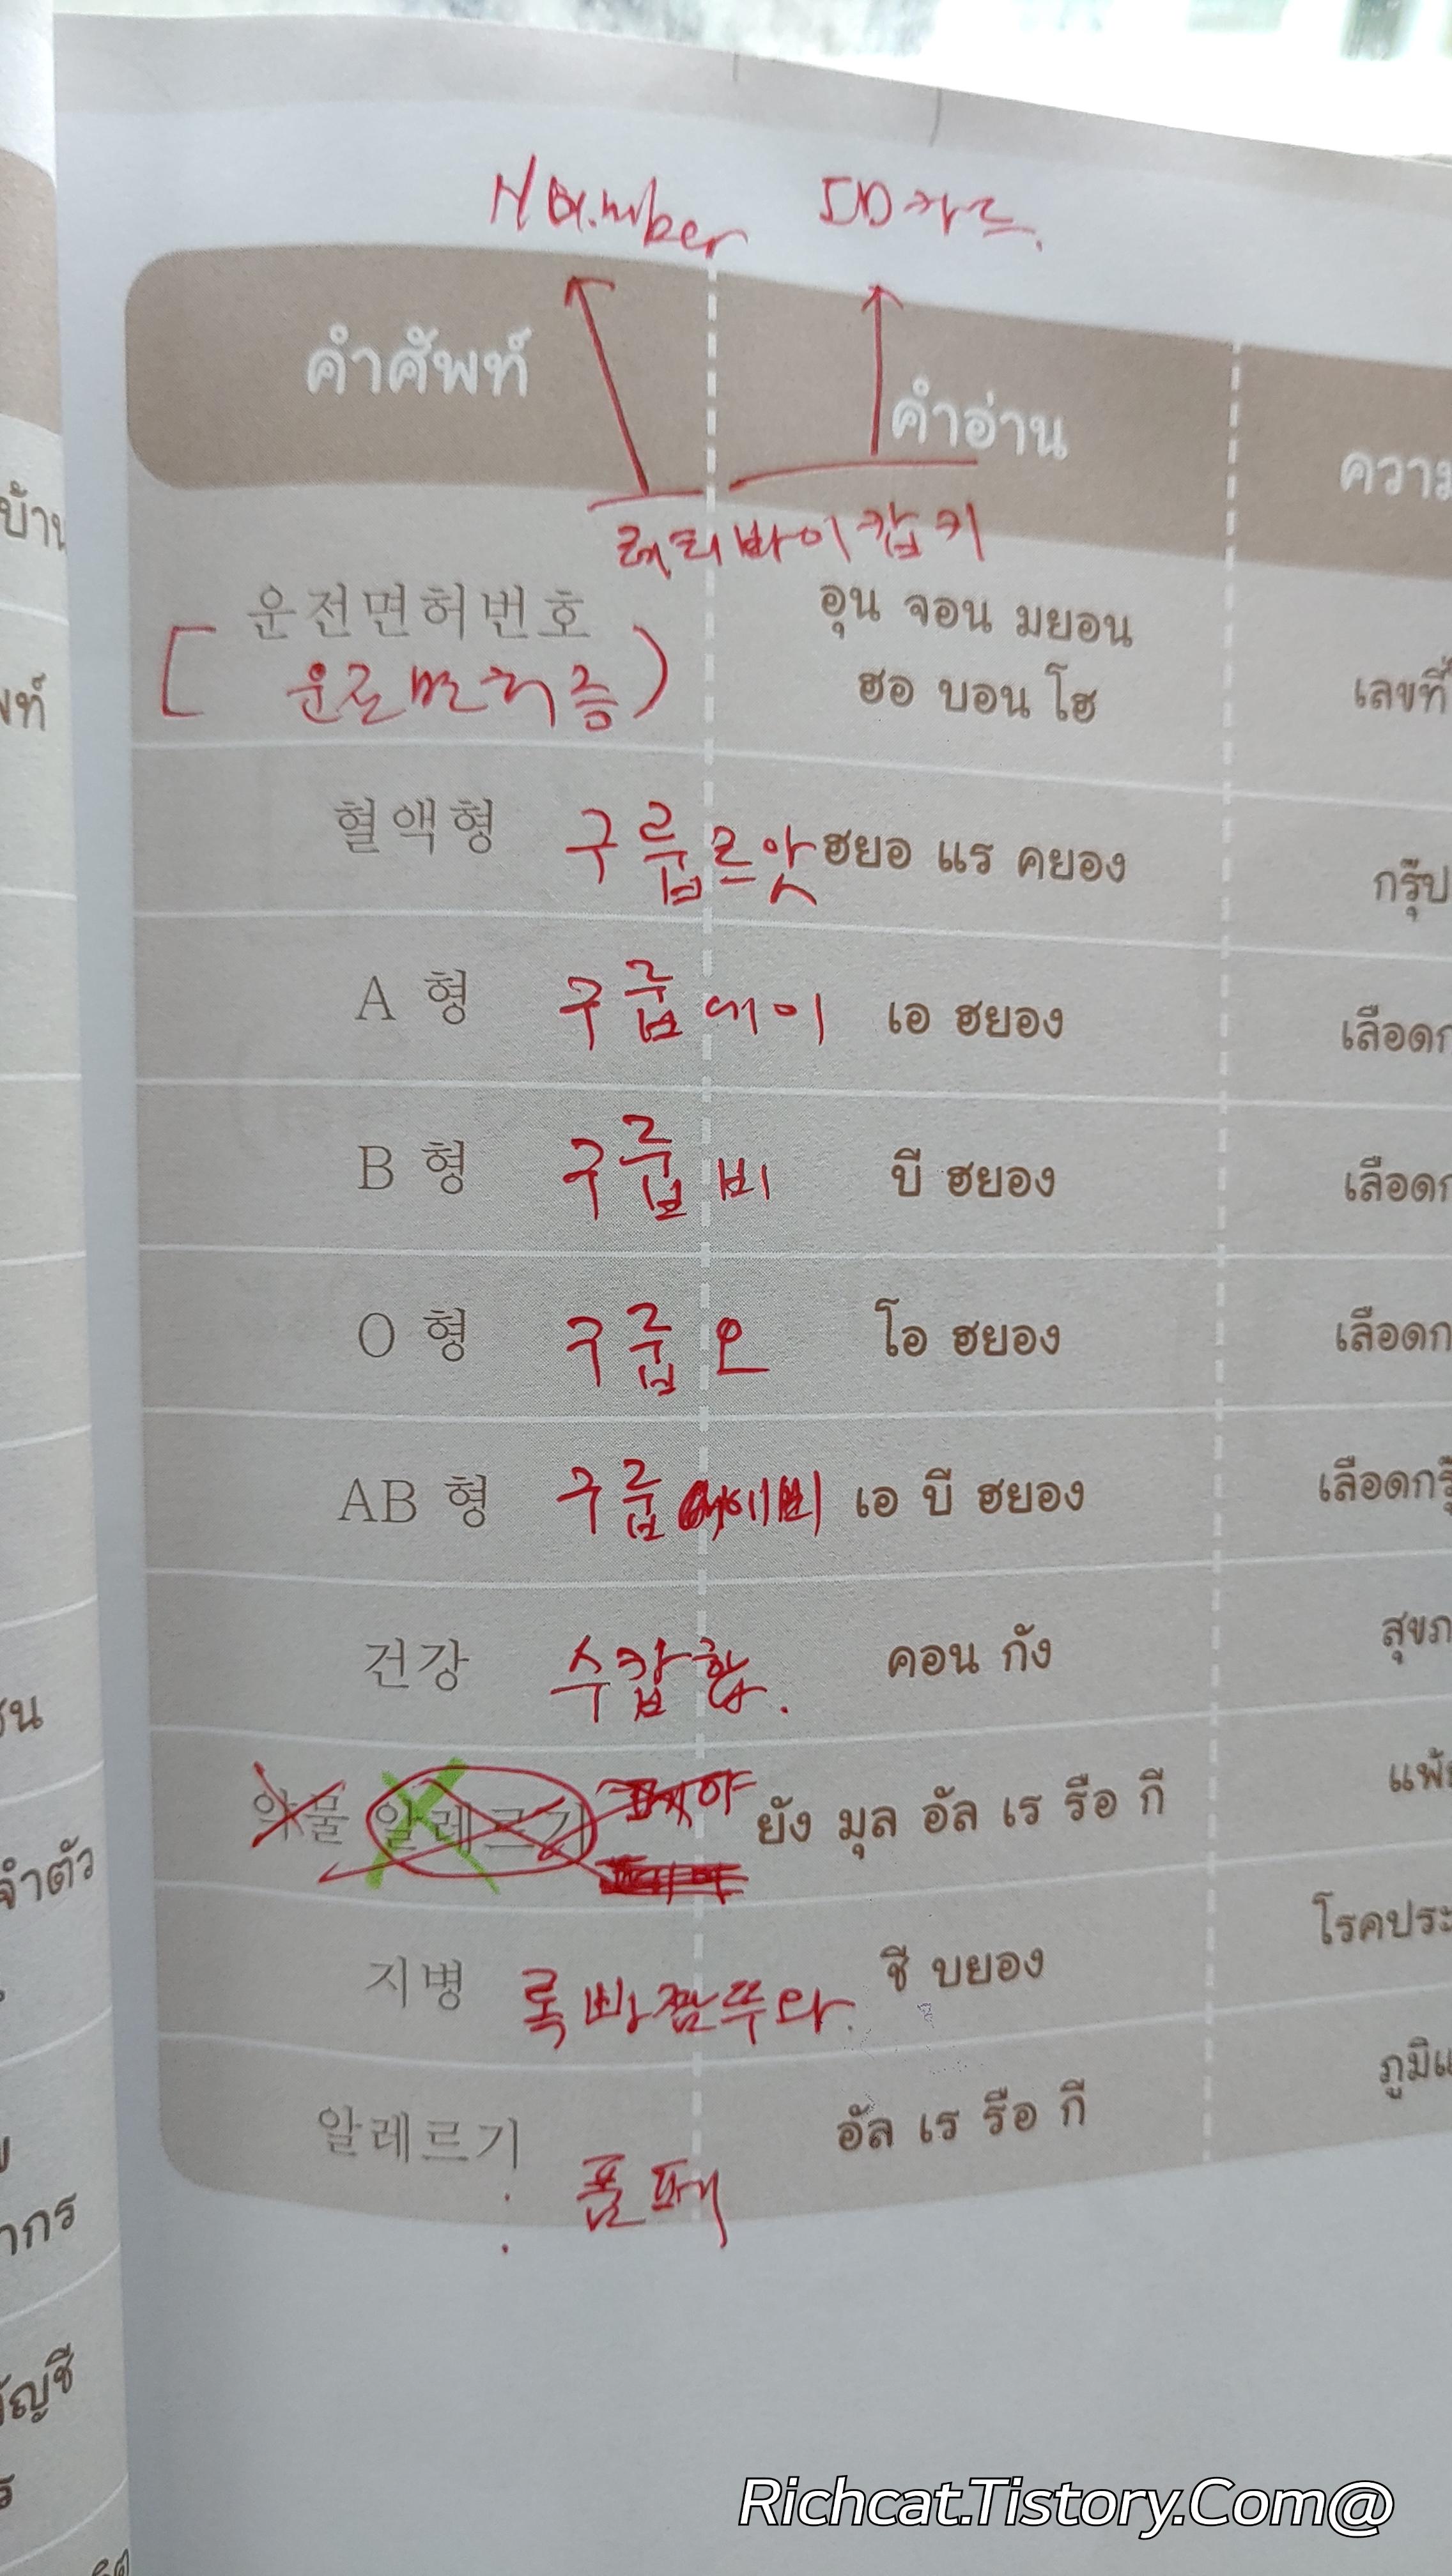 Number ID카드.
คำศัพท์ คำอ่าน ความ
렉티바이캅키
운전면허번호 อุน จอน มยอน
ฮอ บอน โฮ เลขที่
[운전면허증)
혈액형 구룹르앗 ฮยอ แร คยอง กรุ๊ป
A 형 구룹에이 เอ ฮยอง เลือดก
B 형 구룹 비 บี ฮยอง เลือดก
O 형 구룹 오 โอ ฮยอง เลือดก
AB 형 구룹 에이비 เอ บี ฮยอง เลือดกรุ
건강 수캅 คอน กัง สุขภ
약물 알레르기 ยัง มุล อัล เร รือ กี แพ้
지병 록빠짬뚜와. ชี บยอง โรคประ
알레르기 อัล เร รือ กี ภูมิแ
: 품패
บ้าน
พท์
จำตัว
ากร
Richcat.Tistory.Com@